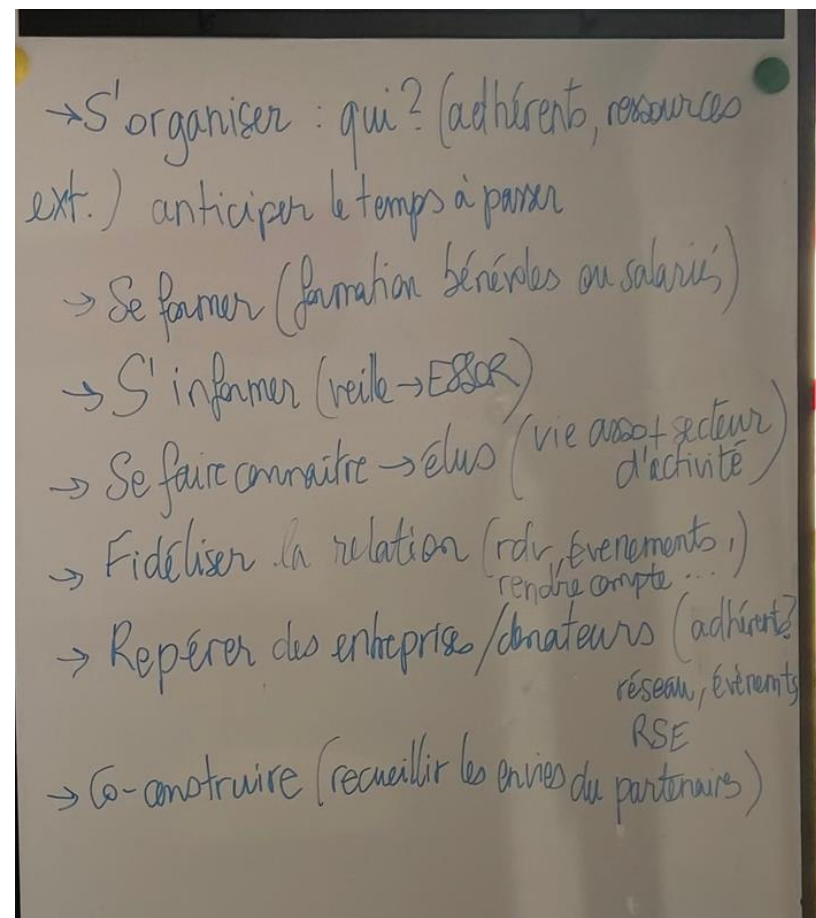 → S'organiser : qui? (adhérents, ressources
ext.) anticiper le temps à passer
→ Se former (formation bénévoles ou salariés)
→ S'informer (veille → ESSOR)
→ Se faire connaître → élus (vie asso + secteur
d'activité)
→ Fidéliser la relation (rdv, évenements,)
rendre compte ...
→ Repérer des entreprises/donateurs (adhérents?
réseau, évènemts
RSE
→ Co-construire (recueillir les envies du partenaires)